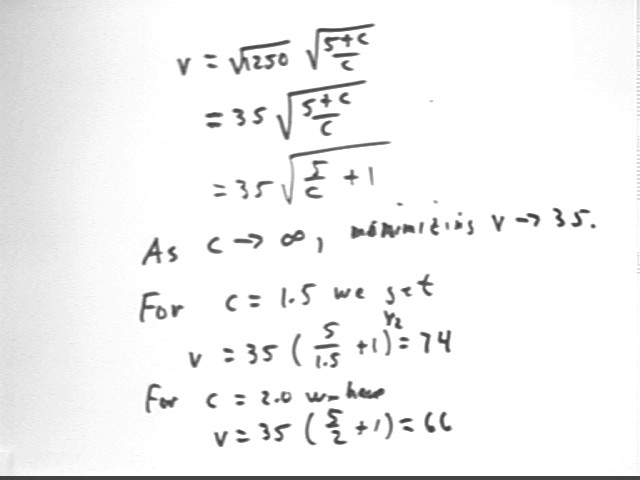 v = √1250 √(5+c/c)
= 35 √(5+c/c)
= 35 √(5/c + 1)
As c → ∞, minimizing v → 35.
For c = 1.5 we get
v = 35 (5/1.5 + 1)^1/2 = 74
For c = 2.0 we have
v = 35 (5/2 + 1) = 66